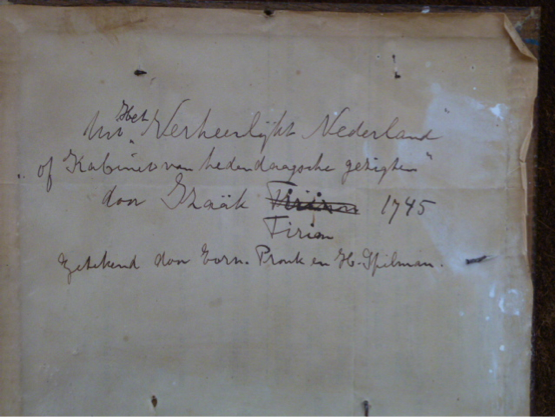 Het
Uit „Verheerlijkt Nederland"
„of Kabinet van hedendaagsche gezigten"
door Izaäk Tirion 1745
Tirion
getekend door Corn. Pronk en H. Spilman.